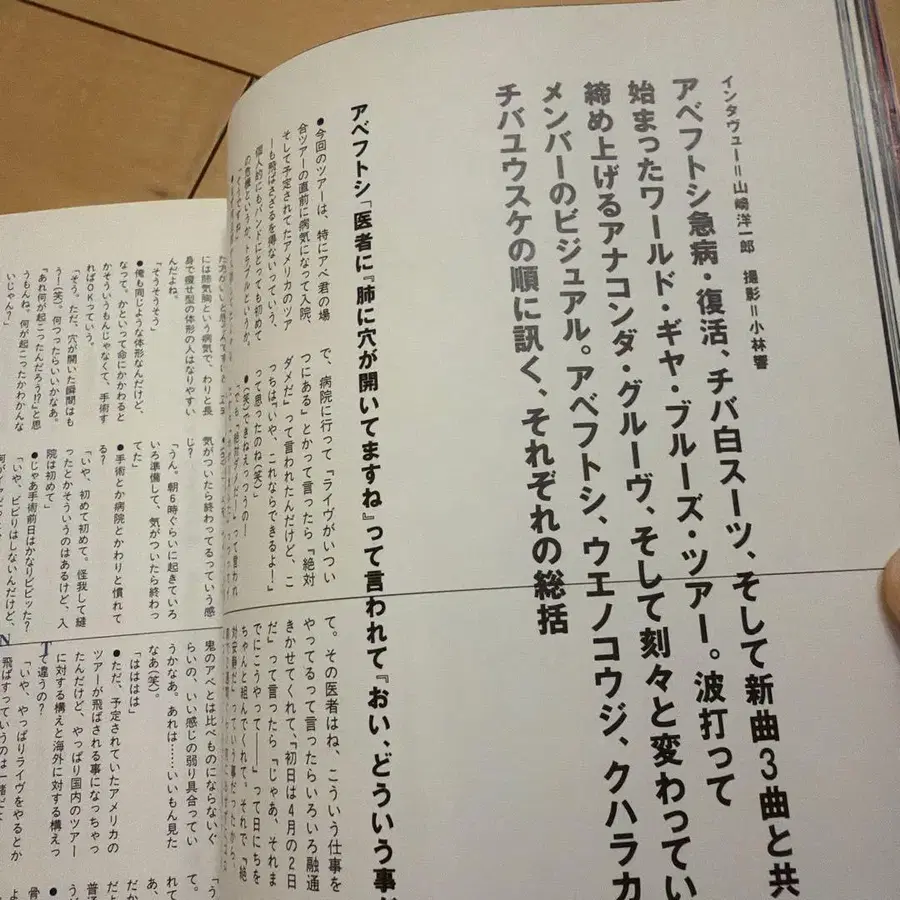 インタヴュー＝山崎洋一郎　撮影＝小林響
アベフトシ急病・復活、チバ白スーツ、そして新曲3曲と共
始まったワールド・ギヤ・ブルーズ・ツアー。波打って
締め上げるアナコンダ・グルーヴ、そして刻々と変わってい
メンバーのビジュアル。アベフトシ、ウエノコウジ、クハラカ
チバユウスケの順に訊く、それぞれの総括
アベフトシ「医者に『肺に穴が開いてますね』って言われて『おい、どういう事
●今回のツアーは、特にアベ君の場
合ツアーの直前に病気になって入院、
そして予定されてたアメリカのツア
ーも飛ばさざるを得ないっていう、
個人的にもバンドにとっても初めて
の危機というか、トラブルというか。
で、病院に行って「ライヴがいつい
つにある」とかって言ったら「絶対
ダメだ」って言われたんだけど、こ
っちは「いや、これならできるよ！」
って思ったのね（笑）」
●（笑）できねえっつうの！
て。その医者はね、こういう仕事を
やってるって言ったらいろいろ融通
きかせてくれて、「初日は4月の2日
だ」って言ったら「じゃあ、それま
でにこうやって――」って日にちを
ちゃんと組んでくれて。それで「絶
には肺気胸という病気で、わりと長
身で痩せ型の体形の人はなりやすい
んだよね。
「そうそうそう」
●俺も同じような体形なんだけど、
なって。かといって命にかかわると
かそういうもんじゃなくて、手術す
ればOKっていう。
「そう。ただ、穴が開いた瞬間はも
う！（笑）。何つったらいいかなあ。
「あれ何が起こったんだろう!?」と思
うもんね。何が起こったかわかんな
いじゃん？」
気がついたら終わってるっていう感
じ？
「うん。朝6時ぐらいに起きていろ
いろ準備して、気がついたら終わっ
てた」
●手術とか病院とかわりと慣れて
る？
「いや、初めて初めて。怪我して縫
ったとかそういうのはあるけど、入
院は初めて」
●じゃあ手術前日はかなりビビッた？
「いや、ビビりはしないんだけど、
鬼のアベとは比べものにならないぐ
らいの、いい感じの弱り具合ってい
うかなあ。あれは……いいもん見た
なあ（笑）。
「はははは」
●ただ、予定されていたアメリカの
ツアーが飛ばされる事になっちゃっ
たんだけど、やっぱり国内のツアー
に対する構えと海外に対する構えっ
て違うの？
「いや、やっぱりライヴをやるとか
飛ばすっていうのは一緒だと